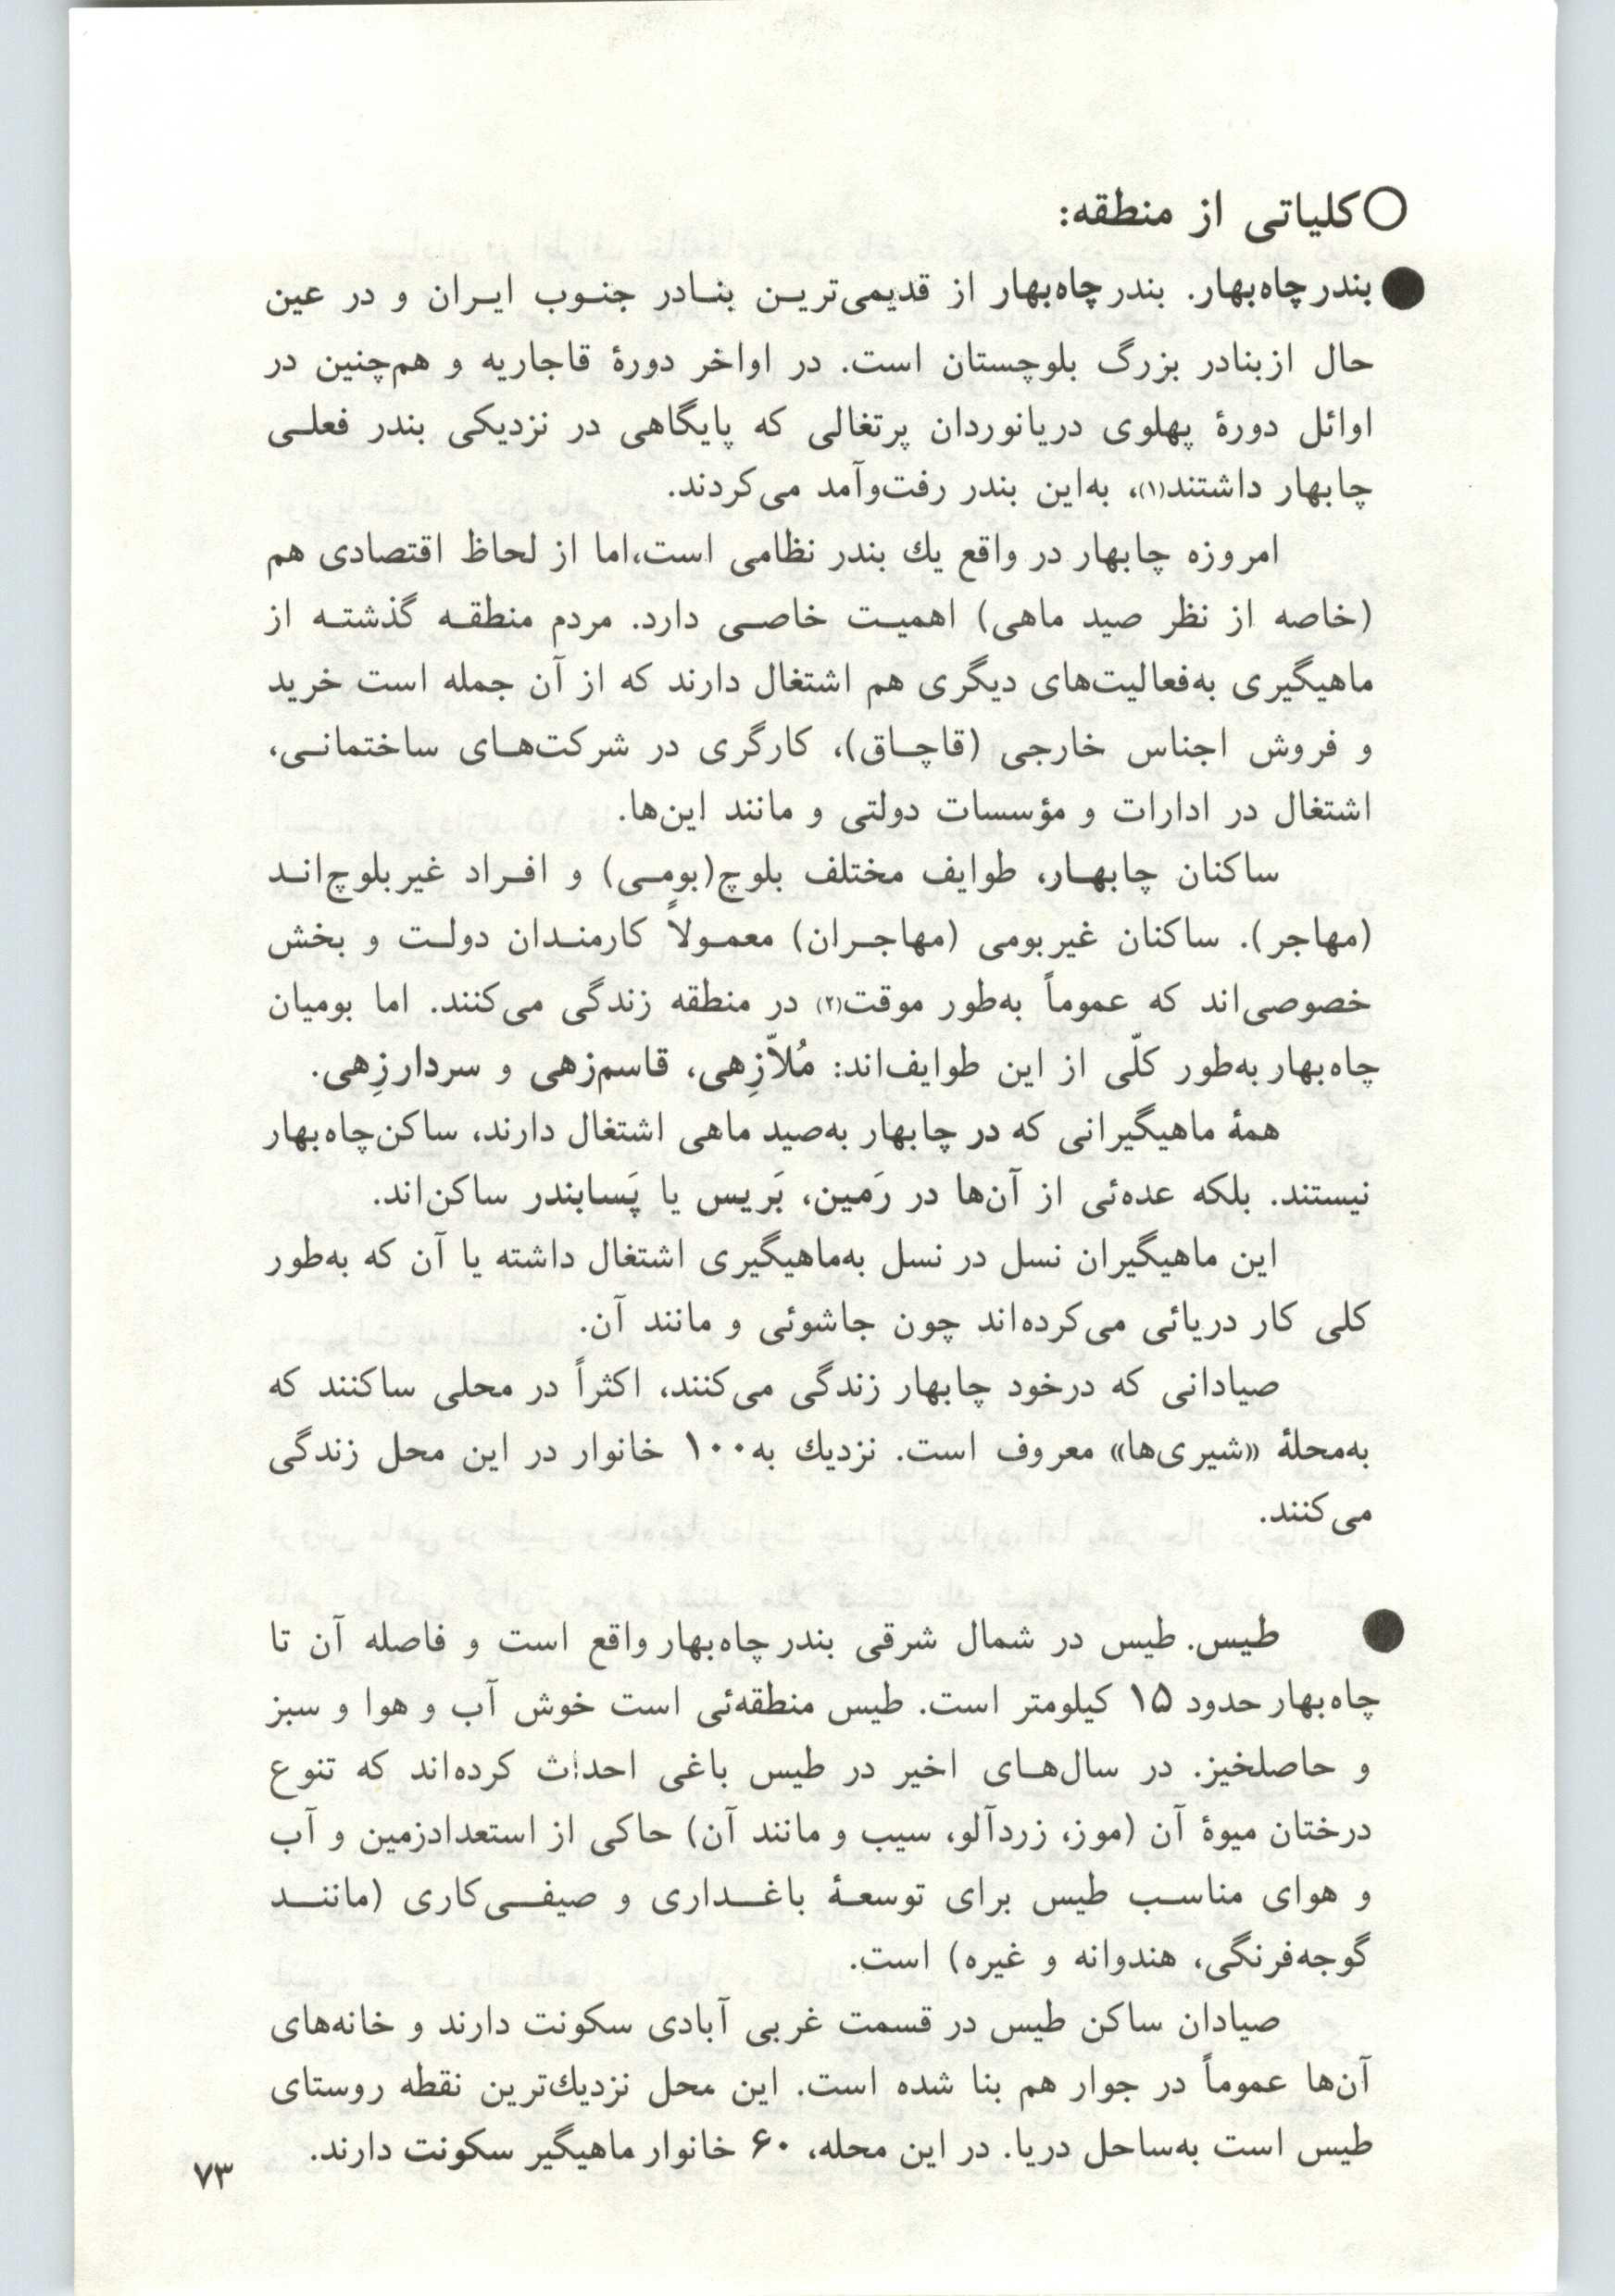 ○ کلیاتی از منطقه:
● بندر چاه‌بهار. بندر چاه‌بهار از قدیمی‌ترین بنادر جنوب ایران و در عین
حال از بنادر بزرگ بلوچستان است. در اواخر دورهٔ قاجاریه و هم‌چنین در
اوائل دورهٔ پهلوی دریانوردان پرتغالی که پایگاهی در نزدیکی بندر فعلی
چابهار داشتند(۱)، به‌این بندر رفت‌وآمد می‌کردند.
امروزه چابهار در واقع یك بندر نظامی است، اما از لحاظ اقتصادی هم
(خاصه از نظر صید ماهی) اهمیت خاصی دارد. مردم منطقه گذشته از
ماهیگیری به‌فعالیت‌های دیگری هم اشتغال دارند که از آن جمله است خرید
و فروش اجناس خارجی (قاچاق)، کارگری در شرکت‌های ساختمانی،
اشتغال در ادارات و مؤسسات دولتی و مانند این‌ها.
ساکنان چابهار، طوایف مختلف بلوچ (بومی) و افراد غیربلوچ‌اند
(مهاجر). ساکنان غیربومی (مهاجران) معمولاً کارمندان دولت و بخش
خصوصی‌اند که عموماً به‌طور موقت(۲) در منطقه زندگی می‌کنند. اما بومیان
چاه‌بهار به‌طور کلّی از این طوایف‌اند: مُلاّزِهی، قاسم‌زهی و سردارزِهی.
همهٔ ماهیگیرانی که در چابهار به‌صید ماهی اشتغال دارند، ساکن چاه‌بهار
نیستند. بلکه عده‌ئی از آن‌ها در رَمین، بَریس یا پَسابندر ساکن‌اند.
این ماهیگیران نسل در نسل به‌ماهیگیری اشتغال داشته یا آن که به‌طور
کلی کار دریائی می‌کرده‌اند چون جاشوئی و مانند آن.
صیادانی که درخود چابهار زندگی می‌کنند، اکثراً در محلی ساکنند که
به‌محلهٔ «شیری‌ها» معروف است. نزدیك به ۱۰۰ خانوار در این محل زندگی
می‌کنند.
● طیس. طیس در شمال شرقی بندر چاه‌بهار واقع است و فاصله آن تا
چاه‌بهار حدود ۱۵ کیلومتر است. طیس منطقه‌ئی است خوش آب و هوا و سبز
و حاصلخیز. در سال‌های اخیر در طیس باغی احداث کرده‌اند که تنوع
درختان میوهٔ آن (موز، زردآلو، سیب و مانند آن) حاکی از استعداد زمین و آب
و هوای مناسب طیس برای توسعهٔ باغداری و صیفی‌کاری (مانند
گوجه‌فرنگی، هندوانه و غیره) است.
صیادان ساکن طیس در قسمت غربی آبادی سکونت دارند و خانه‌های
آن‌ها عموماً در جوار هم بنا شده است. این محل نزدیك‌ترین نقطه روستای
طیس است به‌ساحل دریا. در این محله، ۶۰ خانوار ماهیگیر سکونت دارند.
۷۳